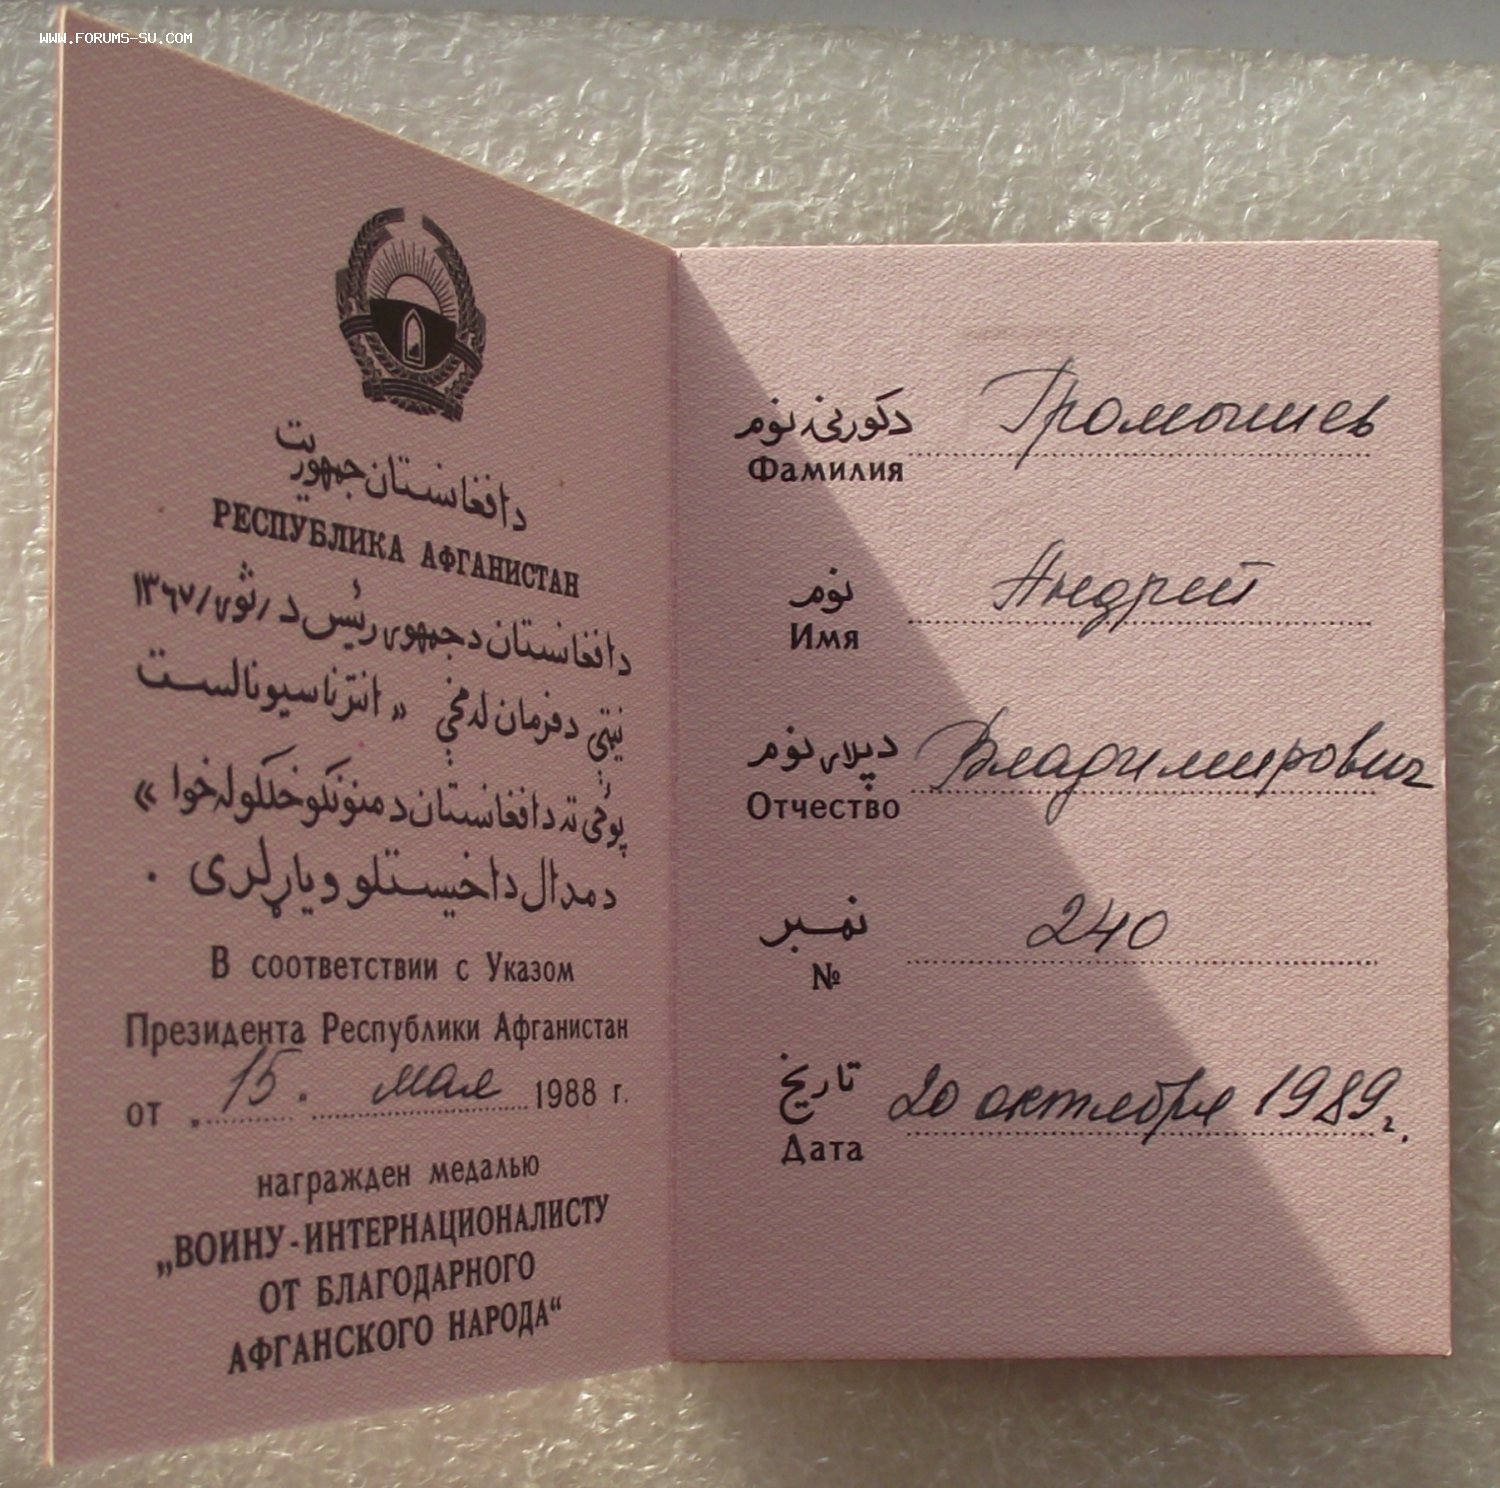 WWW.FORUMS-SU.COM
دافغانستان جمهوریت
РЕСПУБЛИКА АФГАНИСТАН
دافغانستان د جمهوری رئیس د /ثور/ ۱۳۶۷
نیټې د فرمان له مخې « انترناسیونالست
پوځی ته د افغانستان د منونکو خلکو له خوا »
د مدال د اخیستلو ویاړ لری .
В соответствии с Указом
Президента Республики Афганистан
от „ 15 “ мая 1988 г.
награжден медалью
„ВОИНУ-ИНТЕРНАЦИОНАЛИСТУ
ОТ БЛАГОДАРНОГО
АФГАНСКОГО НАРОДА“
دکورنۍ نوم
Громышев
Фамилия
نوم
Андрей
Имя
د پلار نوم
Владимирович
Отчество
نمبر
240
№
تاریخ
20 октября 1989 г.
Дата